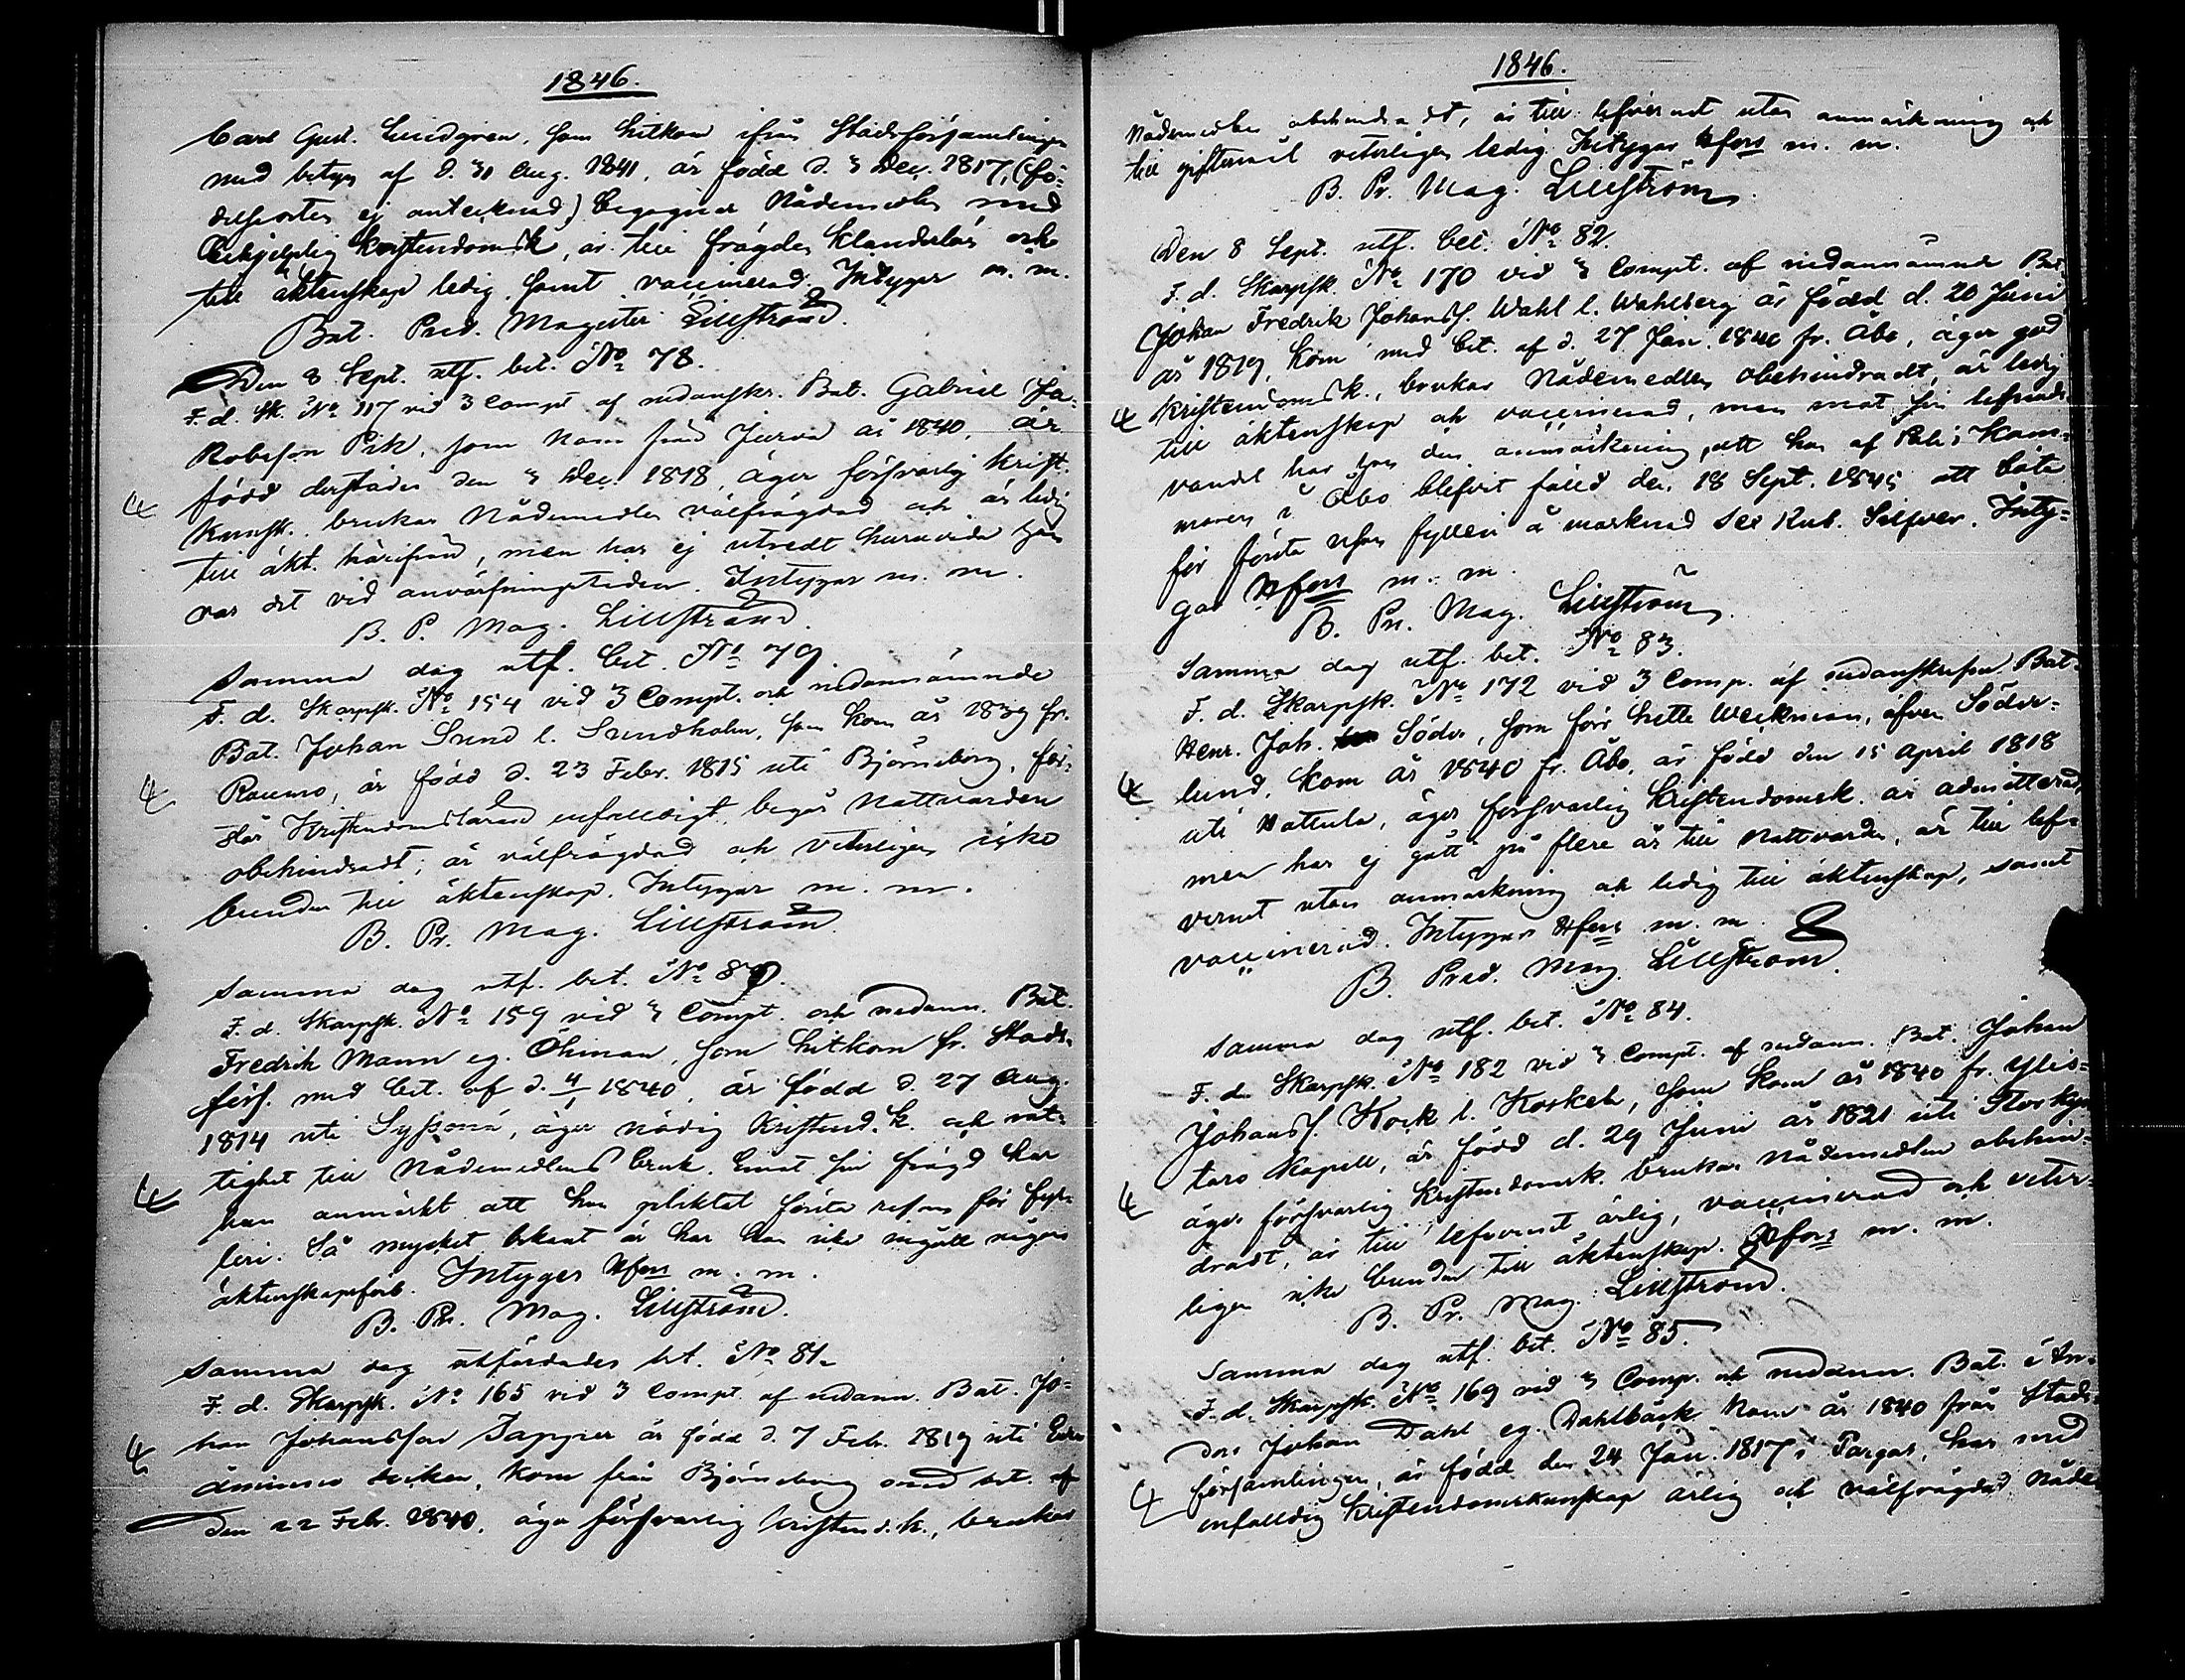 1846.
Carl Gust. Lindgren, som hitkom ifrån Stadsförsamlingen
med betyg af d. 31 Aug. 1841, är född d. 3 Dec. 1817, (fö-
delseorten ej antecknad) begagnar Nådemedlen med
behjelplig kristendomsk, är till frägden klanderlös och
till äktenskap ledig, samt vaccinerad. Intygar m. m.
Bat. Pred. Magister Lillström.
Den 8 Sept. utf. bet. No 78.
F. d. Sk. No 117 vid 3 Compt af nedanskr. Bat. Gabriel Ja-
kobsson Pik, som kom från Jurva år 1840, är
född derstädes den 3 Dec. 1818, äger försvarlig krist.
kunsk. brukar Nådemedlen välfrägdad och är ledig
till äkt. härifrån, men har ej utredt huruvida han
var det vid anvärfningstiden. Intygar m. m.
B. P. Mag. Lillström.
Samma dag utf. bet. No 79.
F. d. Skarpsk. No 154 vid 3 Compt. och nedannämnde
Bat. Johan Sund l. Sundholm, som kom år 1839 fr.
Raumo, är född d. 23 Febr. 1815 uti Björneborg, för-
står Kristendomsläran enfaldigt, begår Nattvarden
obehindradt, är välfrägdad och veterligen icke
bunden till äktenskap. Intygar m. m.
B. Pr. Mag. Lillström
Samma dag utf. bet. No 80.
F. d. Skarpsk. No 159 vid 3 Compt. och nedann. Bat.
Fredrik Mann eg. Öhman, som hitkom fr. Stads-
förs. med bet. af d. 1840, är född d. 27 Aug.
1814 uti Syssmä, äger nödig Kristend. k. och rät-
tighet till Nådemedlens bruk. Emot sin frägd har
han anmärkt att han pliktat första resan för fyl-
leri. Så mycket bekant är har han icke ingått någon
äktenskapsförb. Intygar Hfors m. m.
B. Pr. Mag. Lillström.
Samma dag utfärdades bet. No 81.
F. d. Skarpsk. No 165 vid 3 Compt. af nedann. Bat. Jo-
han Johansson Tappier är född d. 7 Feb. 1819 uti
åminne socken, kom från Björneborg med bet. af
den 22 Febr. 1840, äger försvarlig kristend. k., brukar
1846.
Nådemedlen obehindradt, är till lefvernet utan anmärkning och
till giftermål veterligen ledig. Intygar Hfors m. m.
B. Pr. Mag. Lillström.
Den 8 Sept. utf. bet. No 82.
F. d. Skarpsk. No 170 vid 3 Compt. af nedannämnde Bat.
Johan Fredrik Johanss. Wahl l. Wahlberg är född d. 20 Juni
år 1819, kom med bet. af d. 27 Jan. 1840 fr. Åbo, äger god
kristendomsk., brukar Nådemedlen obehindradt, är ledig
till äktenskap och vaccinerad, men mot sin lefnads
vandel har han den anmärkning, att han af Poliskam-
maren i Åbo blefvit fälld den 18 Sept. 1845 att böta
för första resan fylleri å marknad sex Rub. Silfver. Inty-
gar Hfors m. m.
B. Pr. Mag. Lillström
Samma dag utf. bet. No 83.
F. d. Skarpsk. No 172 vid 3 Comp. af nedanskrifne Bat.
Henr. Joh. Söder, som förr hette Weckman, äfven Söder-
lund, kom år 1840 fr. Åbo, är född den 15 April 1818
uti Hattula, äger försvarlig kristendomsk. är admitterad,
men har ej gått på flere år till Nattvarden, är till lef-
vernet utan anmärkning och ledig till äktenskap, samt
vaccinerad. Intygar Hfors m. m
B. Pred. Mag. Lillström.
Samma dag utf. bet. No 84.
F. d. Skarpsk. No 182 vid 3 Compt. af nedann. Bat. Johan
Johanss. Kock l. Koskela, som kom år 1840 fr. Ylis-
taro Kapell, är född d. 29 Juni år 1821 uti Storkyro
äger försvarlig kristendomsk. brukar nådemedlen obehin-
dradt, är till lefvernet ärlig, vaccinerad och veter-
ligen icke bunden till äktenskap. Hfors m. m.
B. Pr. Mag. Lillström.
Samma dag utf. bet. No 85.
F. d. Skarpsk. No 169 vid 3 Comp. och nedann. Bat. An-
ders Johan Dahl eg. Dahlbäck kom år 1840 från Stads-
församlingen, är född den 24 Jan. 1817 i Pargas, har med
enfaldig kristendomskunskap ärlig och välfrägdad Nåde